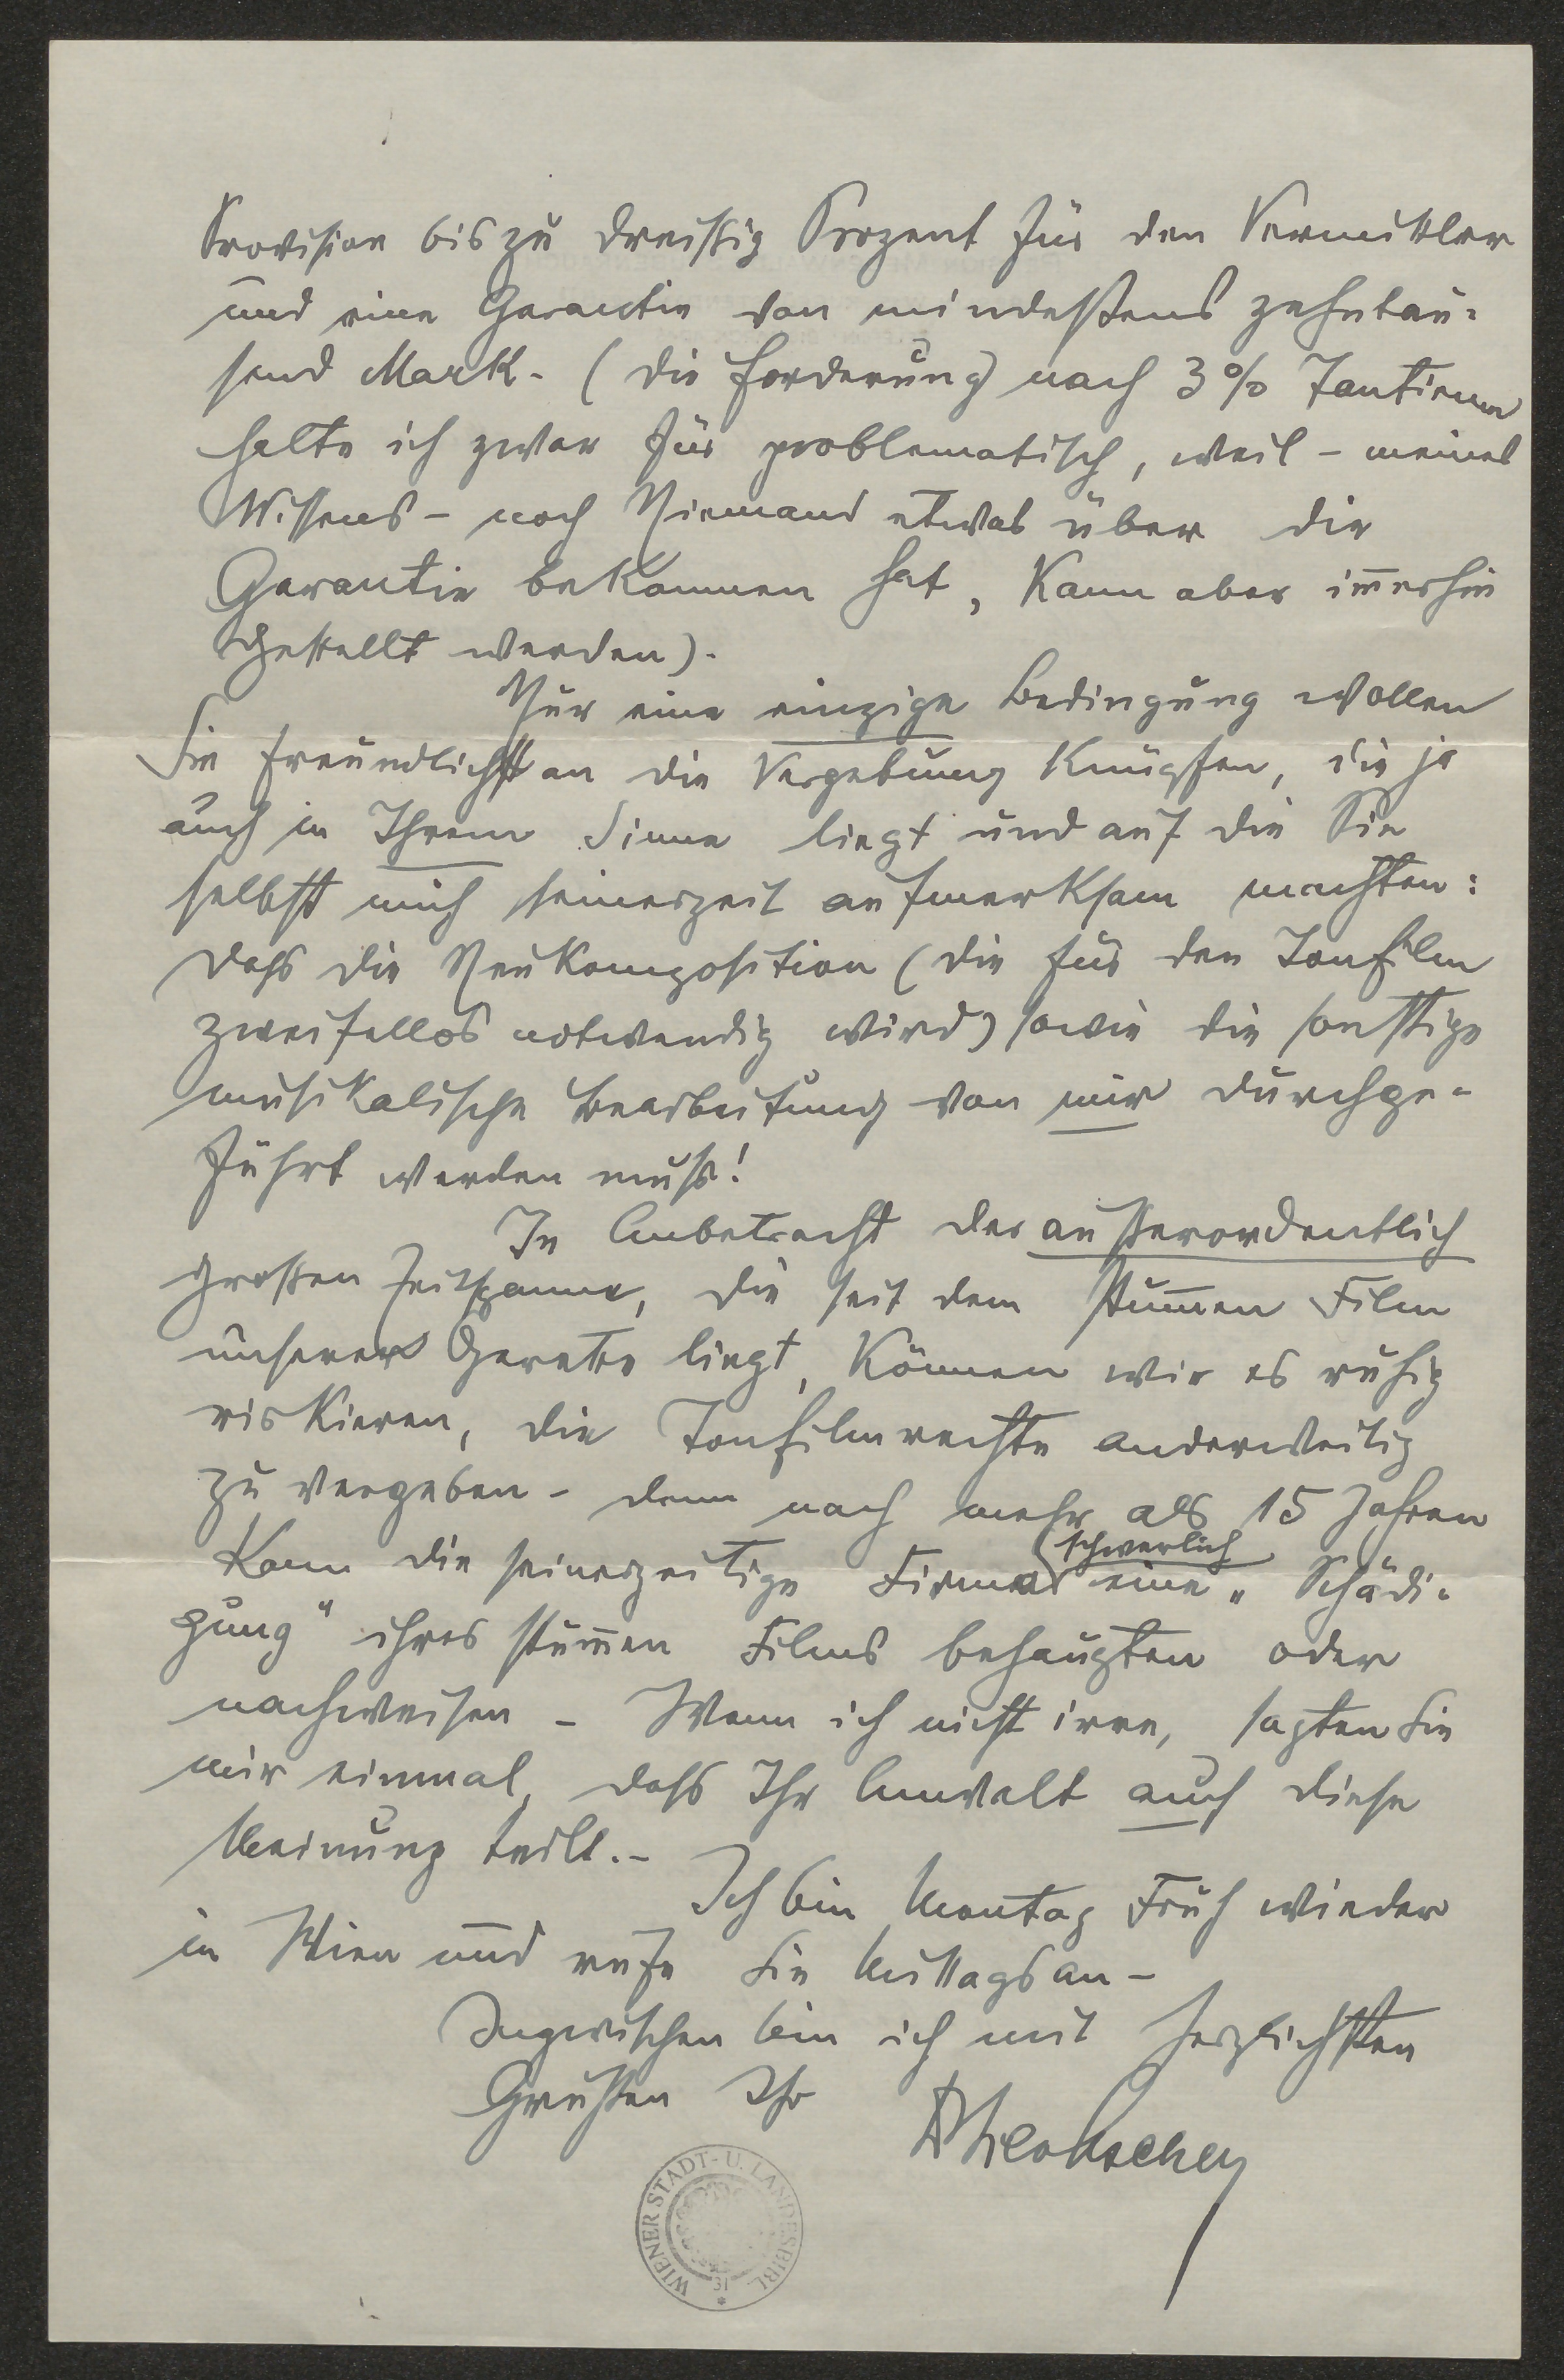 Provision bis zu dreissig Prozent für den Vermittler
und eine Garantie von mindestens zehntau-
send Mark. (die Forderung nach 3% Tantiemen
halte ich zwar für problematisch, weil – meines
Wissens – noch Niemand etwas über die
Garantie bekommen hat, kann aber im̄erhin
gestellt werden).
Nur eine einzige Bedingung wollen
Sie freundlichst an die Vergebung knüpfen, die ja
auch in Ihrem Sinne liegt und auf die Sie
selbst mich seinerzeit aufmerksam machten:
dass die Neukomposition (die für den Tonfilm
zweifellos notwendig wird) sowie die sonstige
musikalische Bearbeitung von mir durchge-
führt werden muss!
In Anbetracht der ausserordentlich
grossen Zeitspanne, die seit dem stum̄en Film
unserer Operette liegt, können wir es ruhig
riskieren, die Tonfilmrechte anderweitig
zu vergeben – denn nach mehr als 15 Jahren
schwerlich
kann die seinerzeitige Firma eine „Schädi-
gung" ihres stum̄en Films behaupten oder
nachweisen – Wenn ich nicht irre, sagten Sie
mir einmal, dass Ihr Anwalt auch diese
Meinung teilt. –
Ich bin Montag Früh wieder
in Wien und rufe Sie Mittags an –
Inzwischen bin ich mit herzlichsten
Grüssen Ihr
WIENER STADT- U. LANDESBIBL.